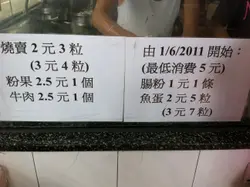 燒賣 2 元 3 粒
(3 元 4 粒)
粉果 2.5 元 1 個
牛肉 2.5 元 1 個
由 1/6/2011 開始：
(最低消費 5 元)
腸粉 1 元 1 條
魚蛋 2 元 5 粒
(3 元 7 粒)